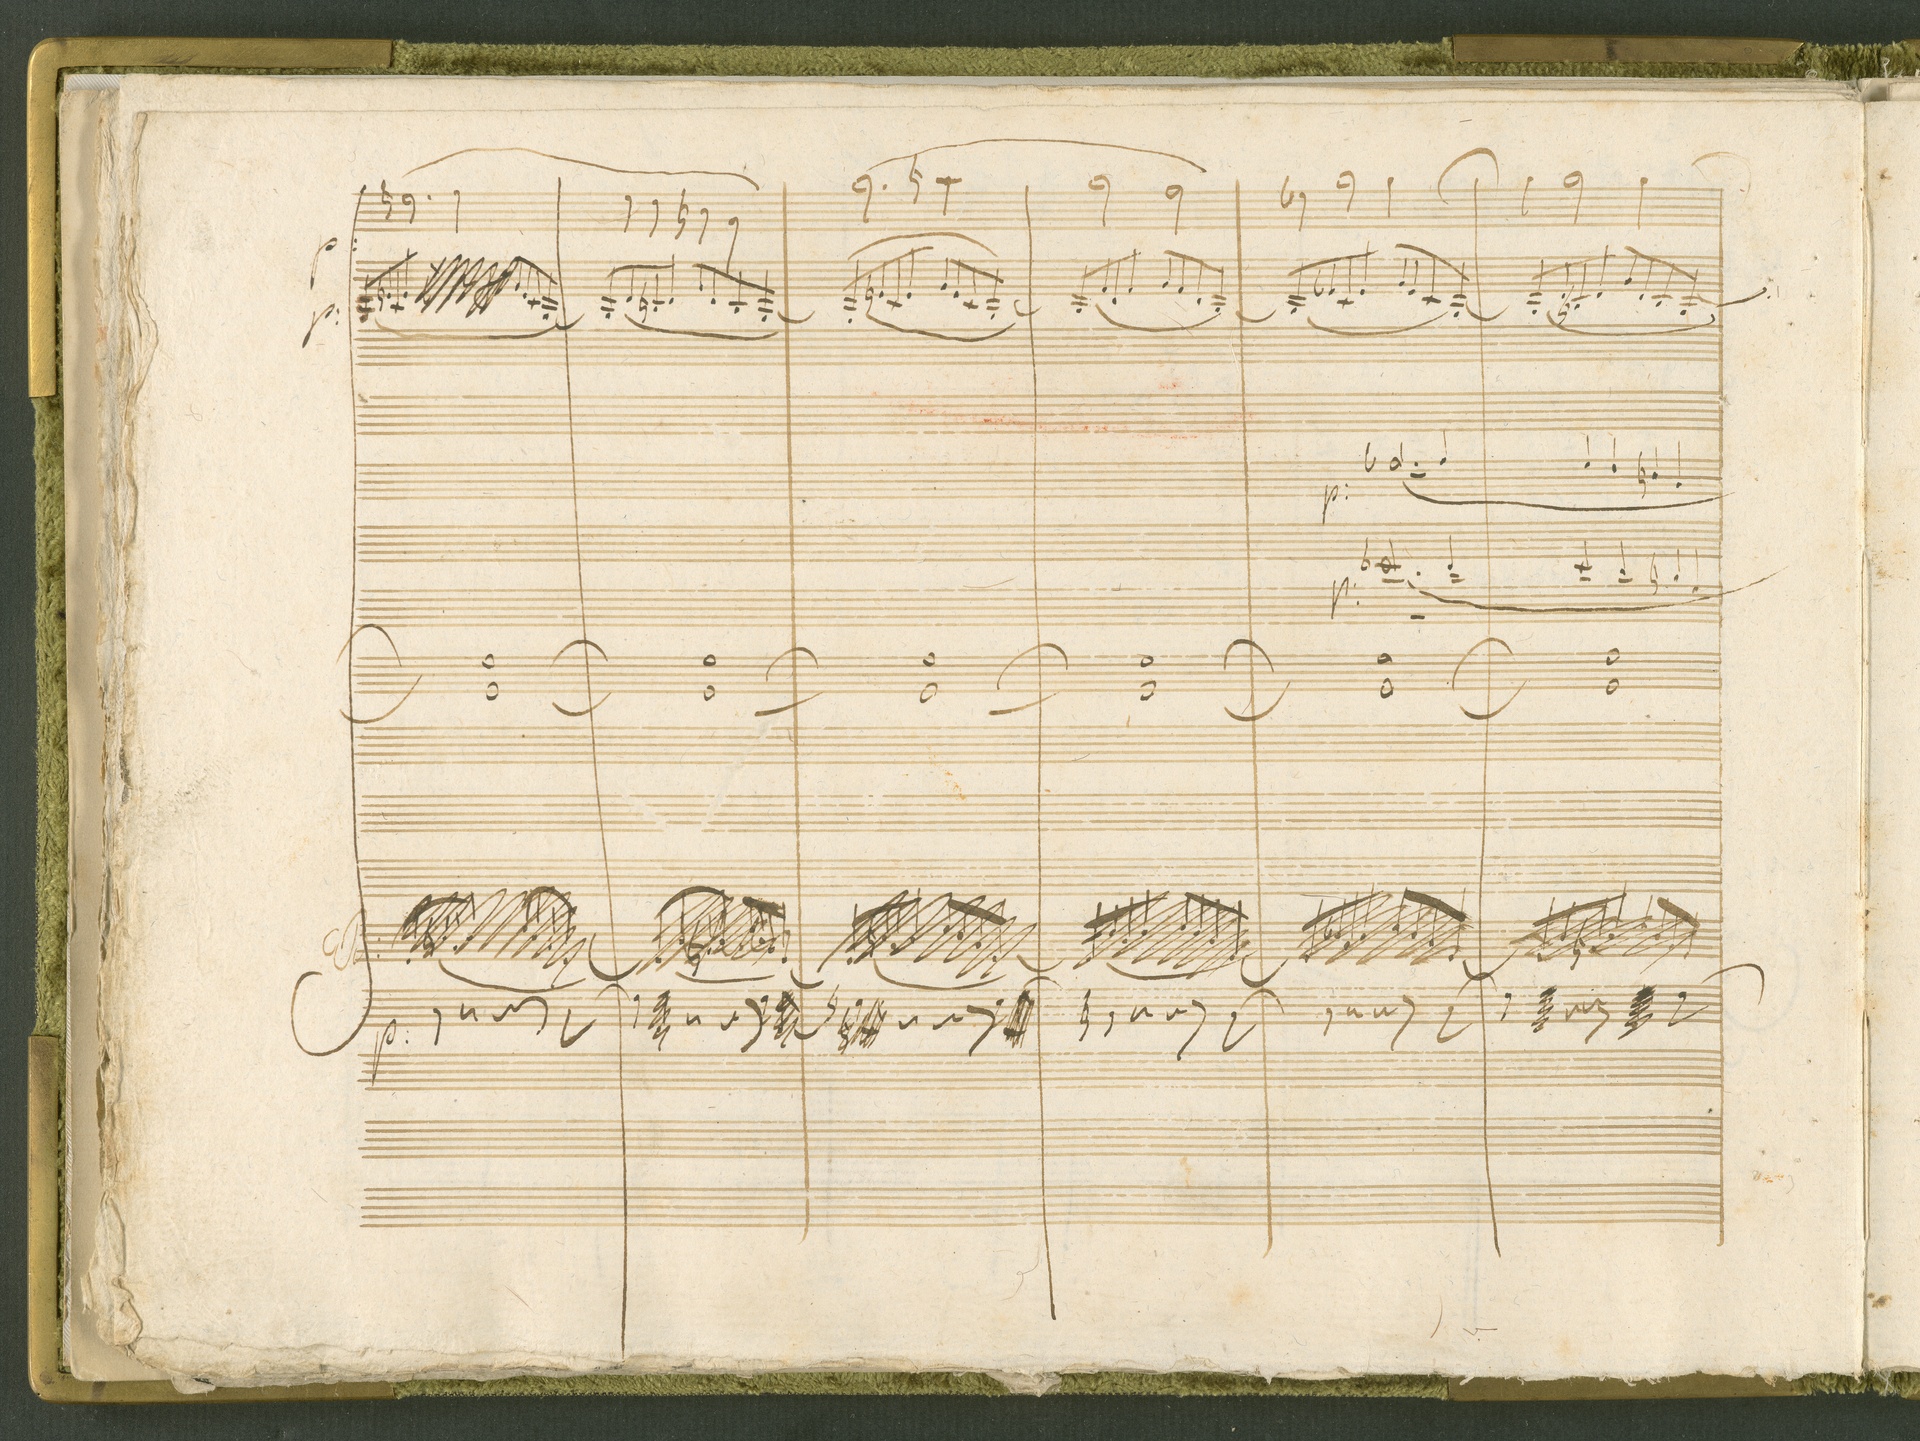 p:
p:
p:
p:
p: